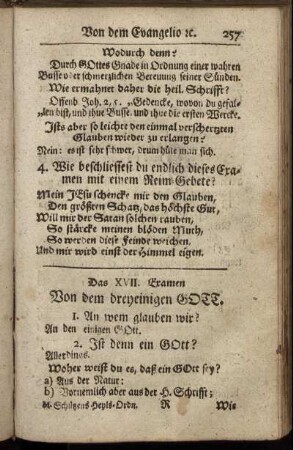 Von dem Evangelio ꝛc. 257
Wodurch denn?
Durch GOttes Gnade in Ordnung einer wahren
Busse oder schmerzlichen Bereuung seiner Sünden.
Wie ermahnet daher die heil. Schrifft?
Offenb. Joh. 2, 5. „Gedencke, wovon du gefal-
„len bist, und thue Busse, und thue die ersten Wercke.
Ists aber so leicht den einmal verschertzten
Glauben wieder zu erlangen?
Nein: es ist sehr schwer, drum hüte man sich.
4. Wie beschliessest du endlich dieses Exa-
men mit einem Reim Gebete?
Mein JEsu schencke mir den Glauben,
Den größten Schatz, das höchste Gut,
Will mir der Satan solchen rauben,
So stärcke meinen blöden Muth,
So werden diese Feinde weichen,
Und mir wird einst der Himmel eigen.
Das XVII. Examen
Von dem dreyeinigen GOTT.
1. An wem glauben wir?
An den einigen GOtt.
2. Ist denn ein GOtt?
Allerdings.
Woher weist du es, daß ein GOtt sey?
a) Aus der Natur:
b) Vornemlich aber aus der H. Schrifft;
M. Schützens Heyls-Ordn. R Wie